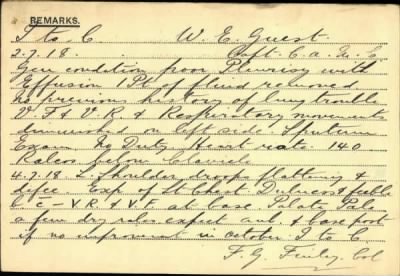 REMARKS.
I to C W. E. Guest
2.7.18. Capt. C.A.M.C.
Gen condition poor Pleurisy with
Effusion 1 Pt. of fluid removed
no previous history of lung trouble
V.F & V.R & Respiratory movements
diminished on left side. Sputum
Exam Heart rate. 140
Rales below Clavicle
4.7.18 L. Shoulder droops flattening &
defec. Exp of Lt Chest Dulness & feeble
V.R & V.F at base. Plate Pale
a few dry rales ant. & base post
if no improvement in october I to C
F. G. Finley Col